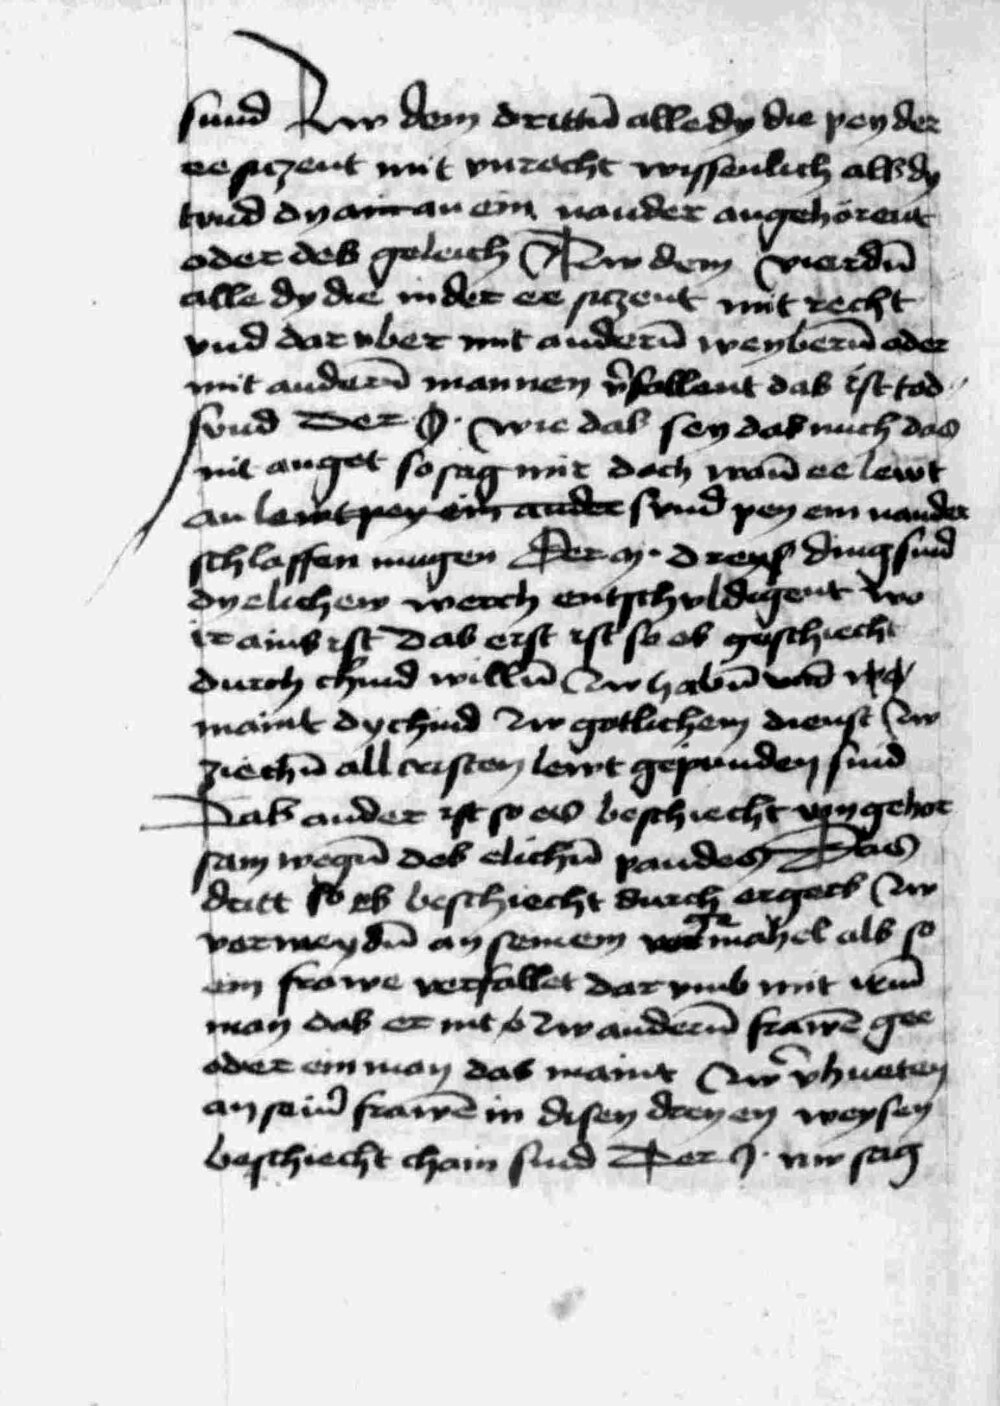 sund Zw dem dritten̄ alle dy die pey der
ee siczent mit vnrecht wissenlich als dy
sind dy an ein nander angehörent
oder des geleich Zw dem vierdn̄
alle dy die in der ee siczent mit recht
vnd dar vber mit andern̄ weybern̄ oder
mit andern̄ mannen v̄fallent das ist tod
sund Der J. wie das sey das mich das
nit anget so sag mir doch wan̄ ee lewt
an sund pey ein nander
schlaffen mugen Der M. dreys ding sind
dy elichew werch entschvldigent wo
ir ains ist Das erst ist so es geschiecht
durch chind willn̄ Zw habn̄ vnd
maint dy chind Zw gotlichem dienst Zw
ziechn̄ all cristen lewt gepunden sind
Das ander ist so es beschiecht von gehor
sam wegn̄ des elichn̄ pandes Das
dritt so es beschiecht durch ergers Zw
vermeydn̄ an seinem gemahel als so
ein frawe verfallet dar vmb mit irm̄
man das er nit Zw andern̄ frawē gee
oder ein man das maint Zw v̄hueten
an seinr̄ frawē in disen dreyen weysen
beschiecht chain sund Der J. nw sag